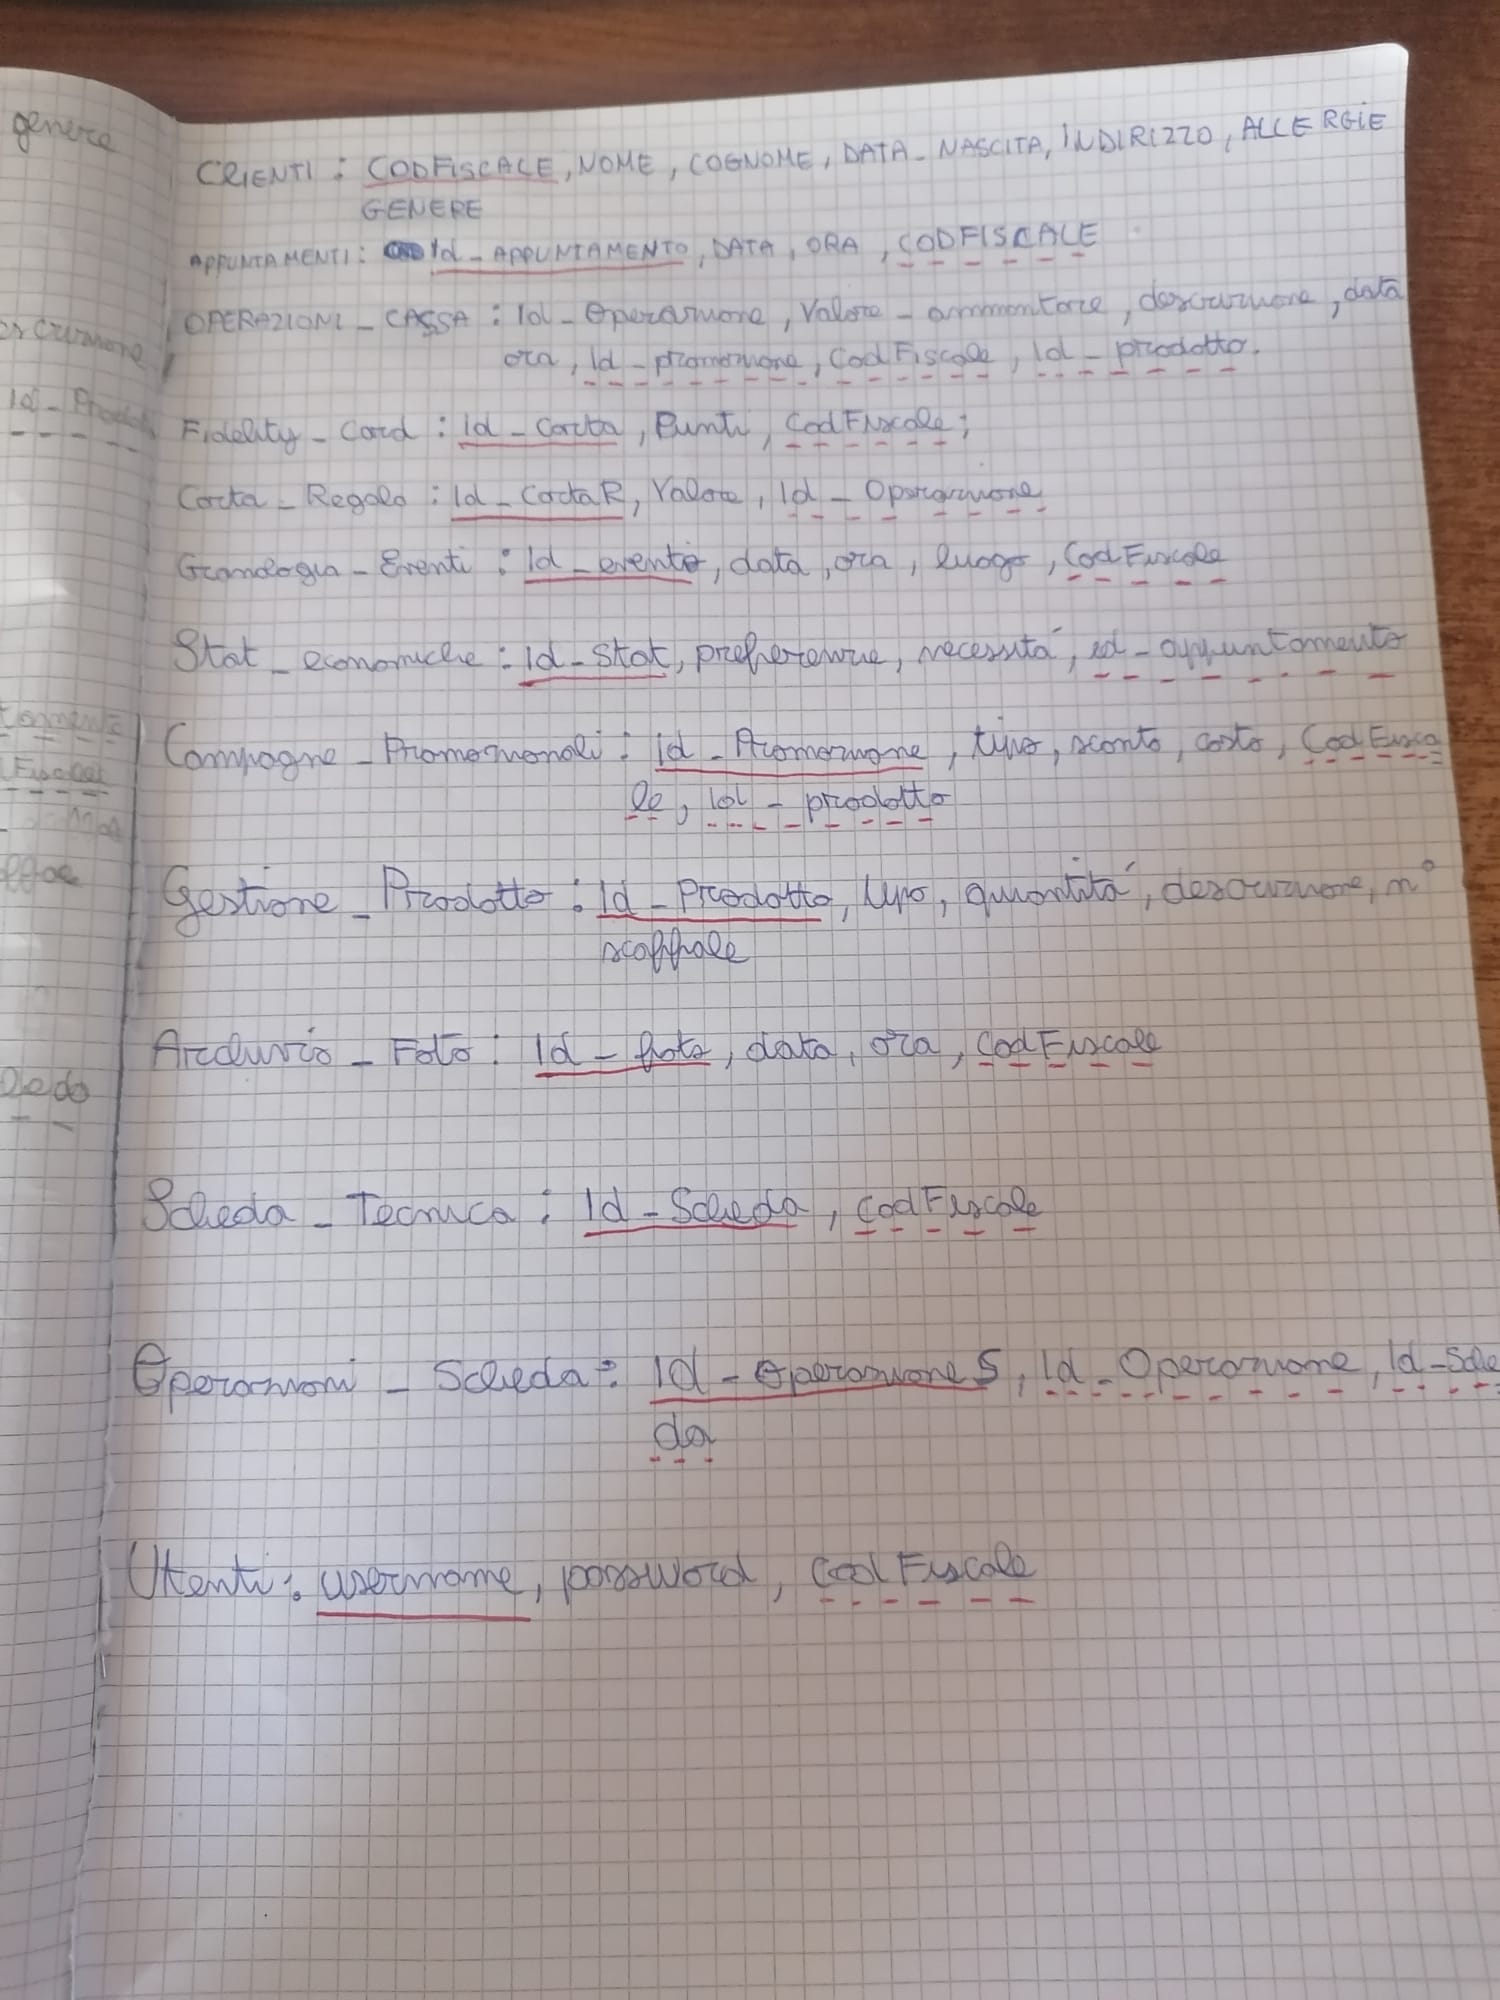 genere
CLIENTI : CODFISCALE, NOME, COGNOME, DATA_NASCITA, INDIRIZZO, ALLERGIE
GENERE
APPUNTAMENTI: Id_APPUNTAMENTO, DATA, ORA, CODFISCALE
OPERAZIONI_CASSA : Id_Operazione, Valore_ammontare, descrizione, data
ora, Id_promozione, CodFiscale, Id_prodotto.
Fidelity_Card : Id_Carta, Punti, CodFiscale;
Carta_Regalo : Id_CartaR, Valore, Id_Operazione
Cronologia_Eventi : Id_evento, data, ora, luogo, CodFiscale
Stat_economiche : Id_Stat, preferenze, necessità, id_appuntamento
Campagne_Promozionali : Id_Promozione, tipo, sconto, costo, CodFisca
le, Id_prodotto
Gestione_Prodotto : Id_Prodotto, tipo, quantità, descrizione, n°
scaffale
Archivio_Foto : Id_foto, data, ora, CodFiscale
Scheda_Tecnica : Id_Scheda, CodFiscale
Operazioni_Scheda : Id_OperazioneS, Id_Operazione, Id_Sche
da
Utenti : username, password, CodFiscale